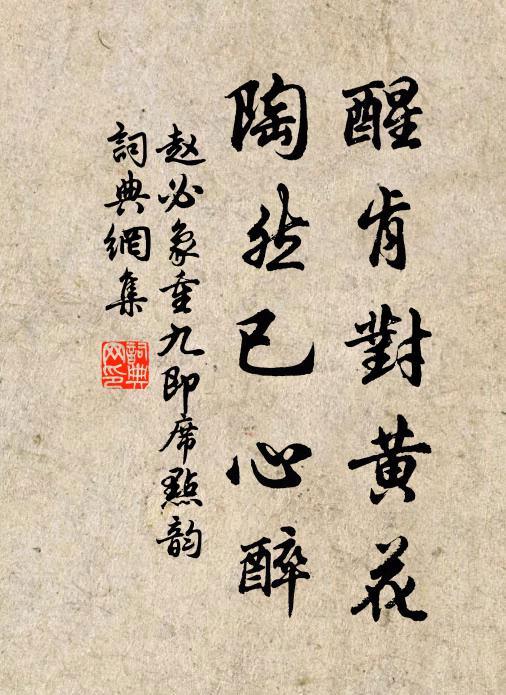 醒肯對黄花
陶然已心醉
赵必象重九即席點韵
詞典網集
詞典
网印